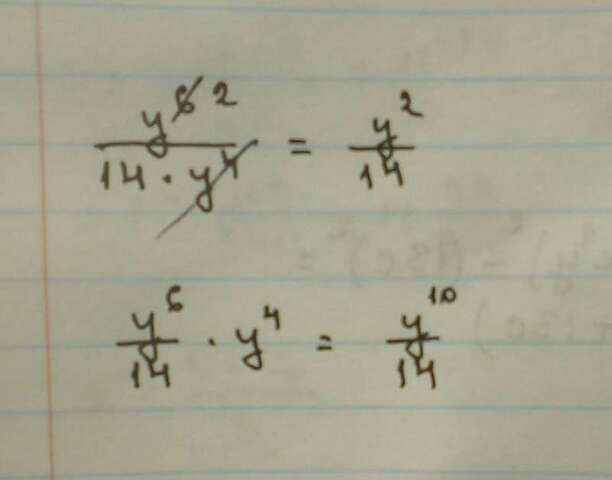 y⁶ ² / 14 · y⁴ = y² / 14
y⁶ / 14 · y⁴ = y¹⁰ / 14